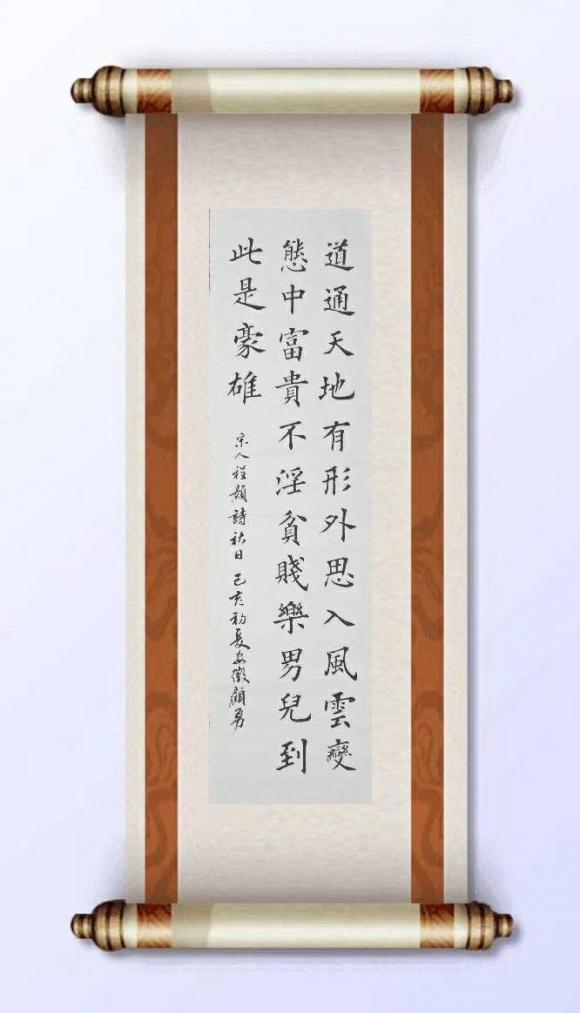 道通天地有形外思入風雲變
態中富貴不淫貧賤樂男兒到
此是豪雄
宋人程顥詩秋日 己亥初夏安徽顧勇